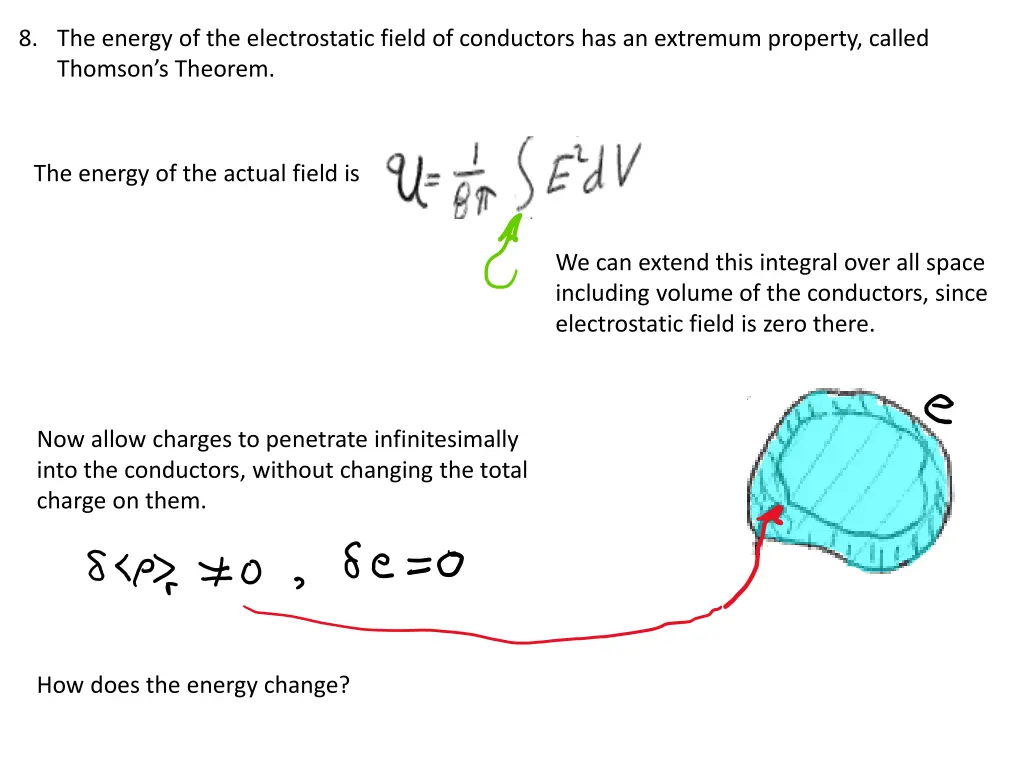 8. The energy of the electrostatic field of conductors has an extremum property, called
Thomson’s Theorem.
The energy of the actual field is
U = 1/8π ∫ E² dV
We can extend this integral over all space
including volume of the conductors, since
electrostatic field is zero there.
e
Now allow charges to penetrate infinitesimally
into the conductors, without changing the total
charge on them.
δ<ρ>ᵣ ≠ 0 , δe = 0
How does the energy change?